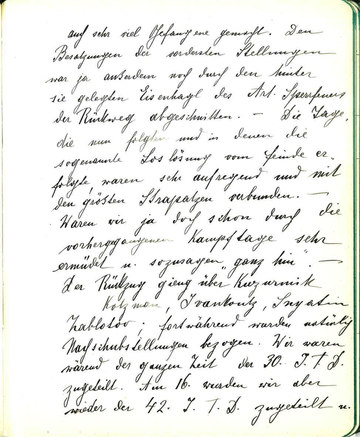 auch sehr viel Gefangene gemacht. Den
Besatzungen der vordersten Stellungen
war ja ausserdem noch durch den hinter
sie gelegten Eisenhagel des Art. Sperrfeuers
der Rückweg abgeschnitten. — Die Tage,
die nun folgten und in denen die
sogenannte Loslösung vom Feinde er
folgte, waren sehr aufregend und mit
den grösten Strapatzen verbunden. —
Waren wir ja doch schon durch die
vorhergegangenen Kampftage sehr
ermüdet u. sozusagen "ganz hin". —
Der Rückzug gieng über Kuzurmik
Kotzman, Ivankoutz, Snyatin
Zablotow; fortwährend wurden
Nachschubstellungen bezogen. Wir waren
wärend der ganzen Zeit der 30. I. T. D.
zugeteilt. Am 16. wurden wir aber
wieder der 42. I. T. D. zugeteilt u.